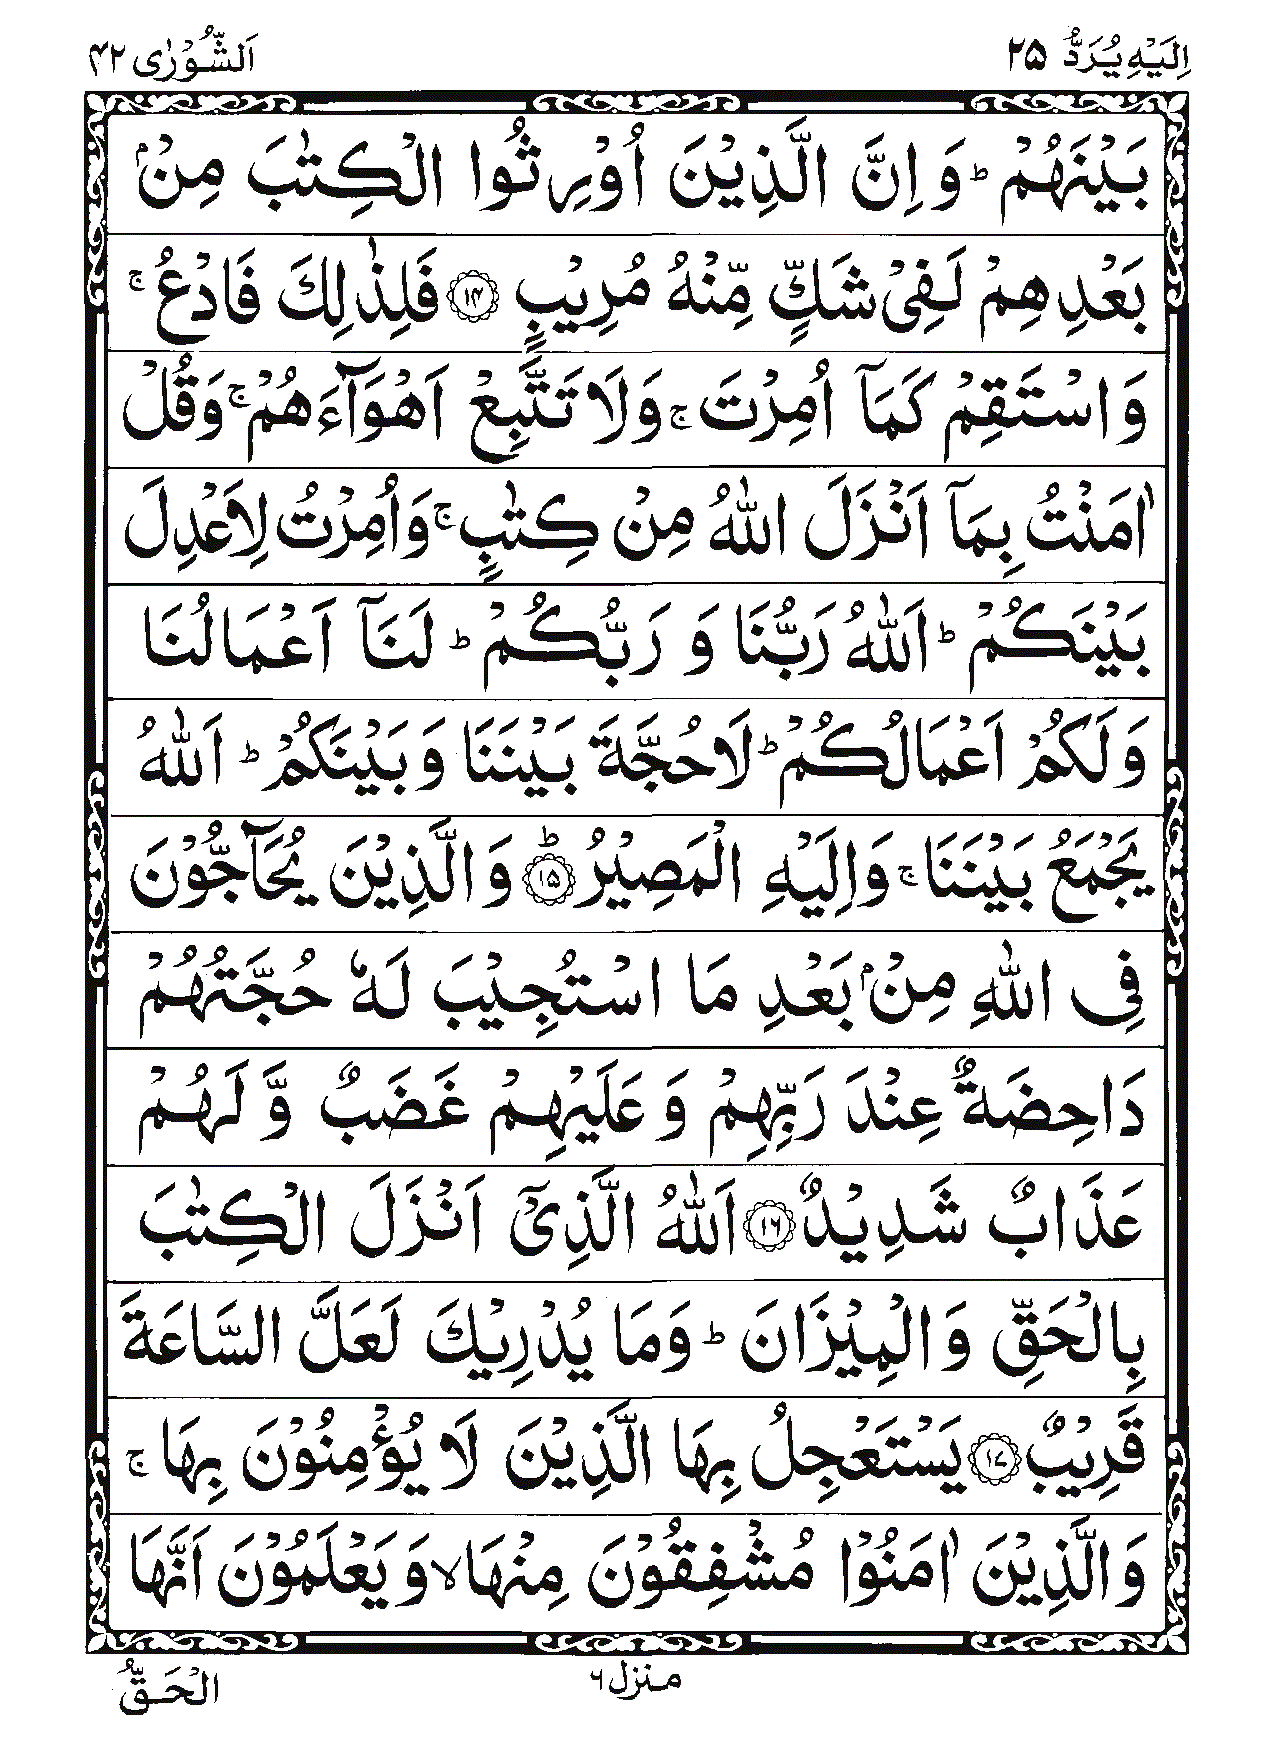 اِلَیْهِ یُرَدُّ ۲۵
اَلشُّوْرٰی ۴۲
بَیْنَهُمْ ؕ وَ اِنَّ الَّذِیْنَ اُوْرِثُوا الْكِتٰبَ مِنْۢ
بَعْدِهِمْ لَفِیْ شَكٍّ مِّنْهُ مُرِیْبٍ ۝۱۴ فَلِذٰلِكَ فَادْعُ ۚ
وَاسْتَقِمْ كَمَاۤ اُمِرْتَ ۚ وَلَا تَتَّبِعْ اَهْوَآءَهُمْ ۚ وَقُلْ
اٰمَنْتُ بِمَاۤ اَنْزَلَ اللّٰهُ مِنْ كِتٰبٍ ۚ وَاُمِرْتُ لِاَعْدِلَ
بَیْنَكُمْ ؕ اَللّٰهُ رَبُّنَا وَ رَبُّكُمْ ؕ لَنَاۤ اَعْمَالُنَا
وَلَكُمْ اَعْمَالُكُمْ ؕ لَاحُجَّةَ بَیْنَنَا وَبَیْنَكُمْ ؕ اَللّٰهُ
یَجْمَعُ بَیْنَنَا ۚ وَاِلَیْهِ الْمَصِیْرُ ۝۱۵ؕ وَالَّذِیْنَ یُحَآجُّوْنَ
فِی اللّٰهِ مِنْۢ بَعْدِ مَا اسْتُجِیْبَ لَهٗ حُجَّتُهُمْ
دَاحِضَةٌ عِنْدَ رَبِّهِمْ وَ عَلَیْهِمْ غَضَبٌ وَّ لَهُمْ
عَذَابٌ شَدِیْدٌ ۝۱۶ اَللّٰهُ الَّذِیْۤ اَنْزَلَ الْكِتٰبَ
بِالْحَقِّ وَالْمِیْزَانَ ؕ وَمَا یُدْرِیْكَ لَعَلَّ السَّاعَةَ
قَرِیْبٌ ۝۱۷ یَسْتَعْجِلُ بِهَا الَّذِیْنَ لَا یُؤْمِنُوْنَ بِهَا ۚ
وَالَّذِیْنَ اٰمَنُوْا مُشْفِقُوْنَ مِنْهَا ۙ وَیَعْلَمُوْنَ اَنَّهَا
منزل ۶
الْحَقُّ